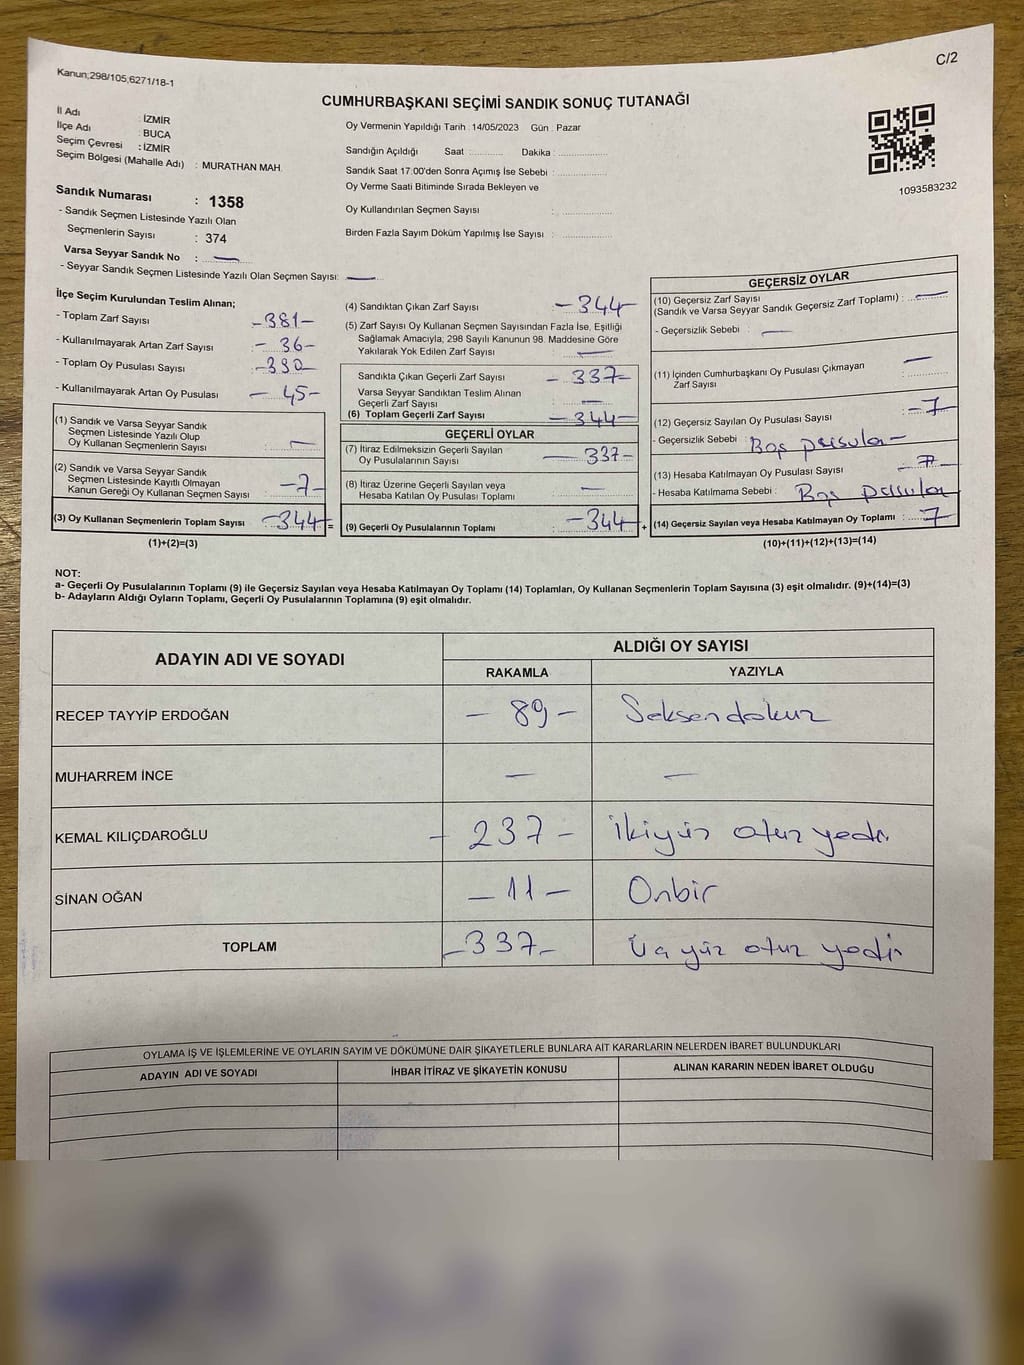 C/2
Kanun;298/105,6271/18-1
CUMHURBAŞKANI SEÇİMİ SANDIK SONUÇ TUTANAĞI
İl Adı : İZMİR
İlçe Adı : BUCA
Seçim Çevresi : İZMİR
Seçim Bölgesi (Mahalle Adı) : MURATHAN MAH.
Sandık Numarası : 1358
- Sandık Seçmen Listesinde Yazılı Olan
Seçmenlerin Sayısı : 374
Varsa Seyyar Sandık No : —
- Seyyar Sandık Seçmen Listesinde Yazılı Olan Seçmen Sayısı: —
Oy Vermenin Yapıldığı Tarih : 14/05/2023 Gün : Pazar
Sandığın Açıldığı Saat : ............ Dakika : ..................
Sandık Saat 17:00'den Sonra Açımış İse Sebebi : ..................
Oy Verme Saati Bitiminde Sırada Bekleyen ve
Oy Kullandırılan Seçmen Sayısı : ..................
Birden Fazla Sayım Döküm Yapılmış İse Sayısı : ..................
1093583232
İlçe Seçim Kurulundan Teslim Alınan;
- Toplam Zarf Sayısı -381-
- Kullanılmayarak Artan Zarf Sayısı - 36-
- Toplam Oy Pusulası Sayısı
- Kullanılmayarak Artan Oy Pusulası - 45-
(1) Sandık ve Varsa Seyyar Sandık
Seçmen Listesinde Yazılı Olup
Oy Kullanan Seçmenlerin Sayısı : —
(2) Sandık ve Varsa Seyyar Sandık
Seçmen Listesinde Kayıtlı Olmayan
Kanun Gereği Oy Kullanan Seçmen Sayısı : -7-
(3) Oy Kullanan Seçmenlerin Toplam Sayısı : -344- =
(1)+(2)=(3)
(4) Sandıktan Çıkan Zarf Sayısı : -344-
(5) Zarf Sayısı Oy Kullanan Seçmen Sayısından Fazla İse, Eşitliği
Sağlamak Amacıyla; 298 Sayılı Kanunun 98. Maddesine Göre
Yakılarak Yok Edilen Zarf Sayısı : —
Sandıkta Çıkan Geçerli Zarf Sayısı - 337-
Varsa Seyyar Sandıktan Teslim Alınan
Geçerli Zarf Sayısı —
(6) Toplam Geçerli Zarf Sayısı -344-
GEÇERLİ OYLAR
(7) İtiraz Edilmeksizin Geçerli Sayılan
Oy Pusulalarının Sayısı : — 337-
(8) İtiraz Üzerine Geçerli Sayılan veya
Hesaba Katılan Oy Pusulası Toplamı : —
(9) Geçerli Oy Pusulalarının Toplamı : -344 +
GEÇERSİZ OYLAR
(10) Geçersiz Zarf Sayısı
(Sandık ve Varsa Seyyar Sandık Geçersiz Zarf Toplamı) : —
- Geçersizlik Sebebi : —
(11) İçinden Cumhurbaşkanı Oy Pusulası Çıkmayan
Zarf Sayısı : —
(12) Geçersiz Sayılan Oy Pusulası Sayısı : -7-
- Geçersizlik Sebebi : Boş pusula-
(13) Hesaba Katılmayan Oy Pusulası Sayısı : -7-
- Hesaba Katılmama Sebebi : Boş pusula
(14) Geçersiz Sayılan veya Hesaba Katılmayan Oy Toplamı : 7
(10)+(11)+(12)+(13)=(14)
NOT:
a- Geçerli Oy Pusulalarının Toplamı (9) ile Geçersiz Sayılan veya Hesaba Katılmayan Oy Toplamı (14) Toplamları, Oy Kullanan Seçmenlerin Toplam Sayısına (3) eşit olmalıdır. (9)+(14)=(3)
b- Adayların Aldığı Oyların Toplamı, Geçerli Oy Pusulalarının Toplamına (9) eşit olmalıdır.
ADAYIN ADI VE SOYADI ALDIĞI OY SAYISI
RAKAMLA YAZIYLA
RECEP TAYYİP ERDOĞAN - 89 - Seksendokuz
MUHARREM İNCE — —
KEMAL KILIÇDAROĞLU - 237 - ikiyüz otuz yedi.
SİNAN OĞAN - 11 - Onbir
TOPLAM -337- Üç yüz otuz yedi
OYLAMA İŞ VE İŞLEMLERİNE VE OYLARIN SAYIM VE DÖKÜMÜNE DAİR ŞİKAYETLERLE BUNLARA AİT KARARLARIN NELERDEN İBARET BULUNDUKLARI
ADAYIN ADI VE SOYADI İHBAR İTİRAZ VE ŞİKAYETİN KONUSU ALINAN KARARIN NEDEN İBARET OLDUĞU